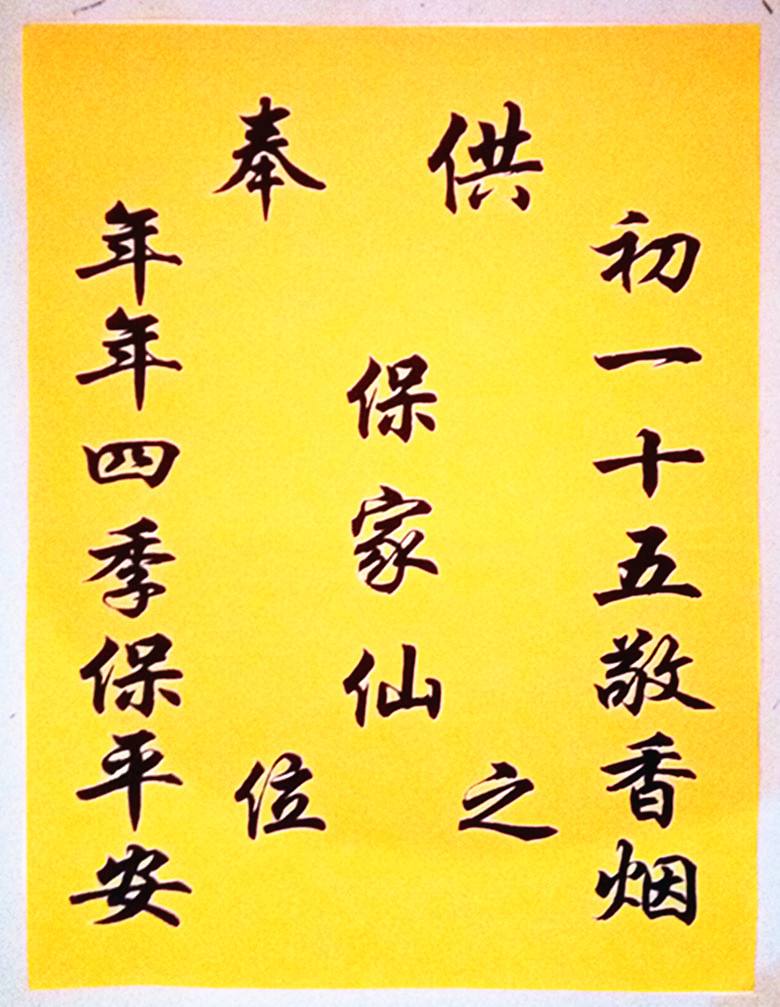 初一十五敬香烟
供奉
保家仙
之位
年年四季保平安